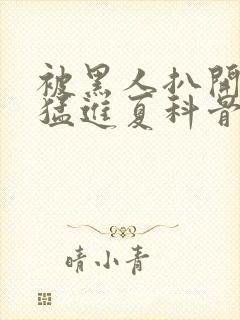 被黑人扒開
猛進夏科音
晴小青